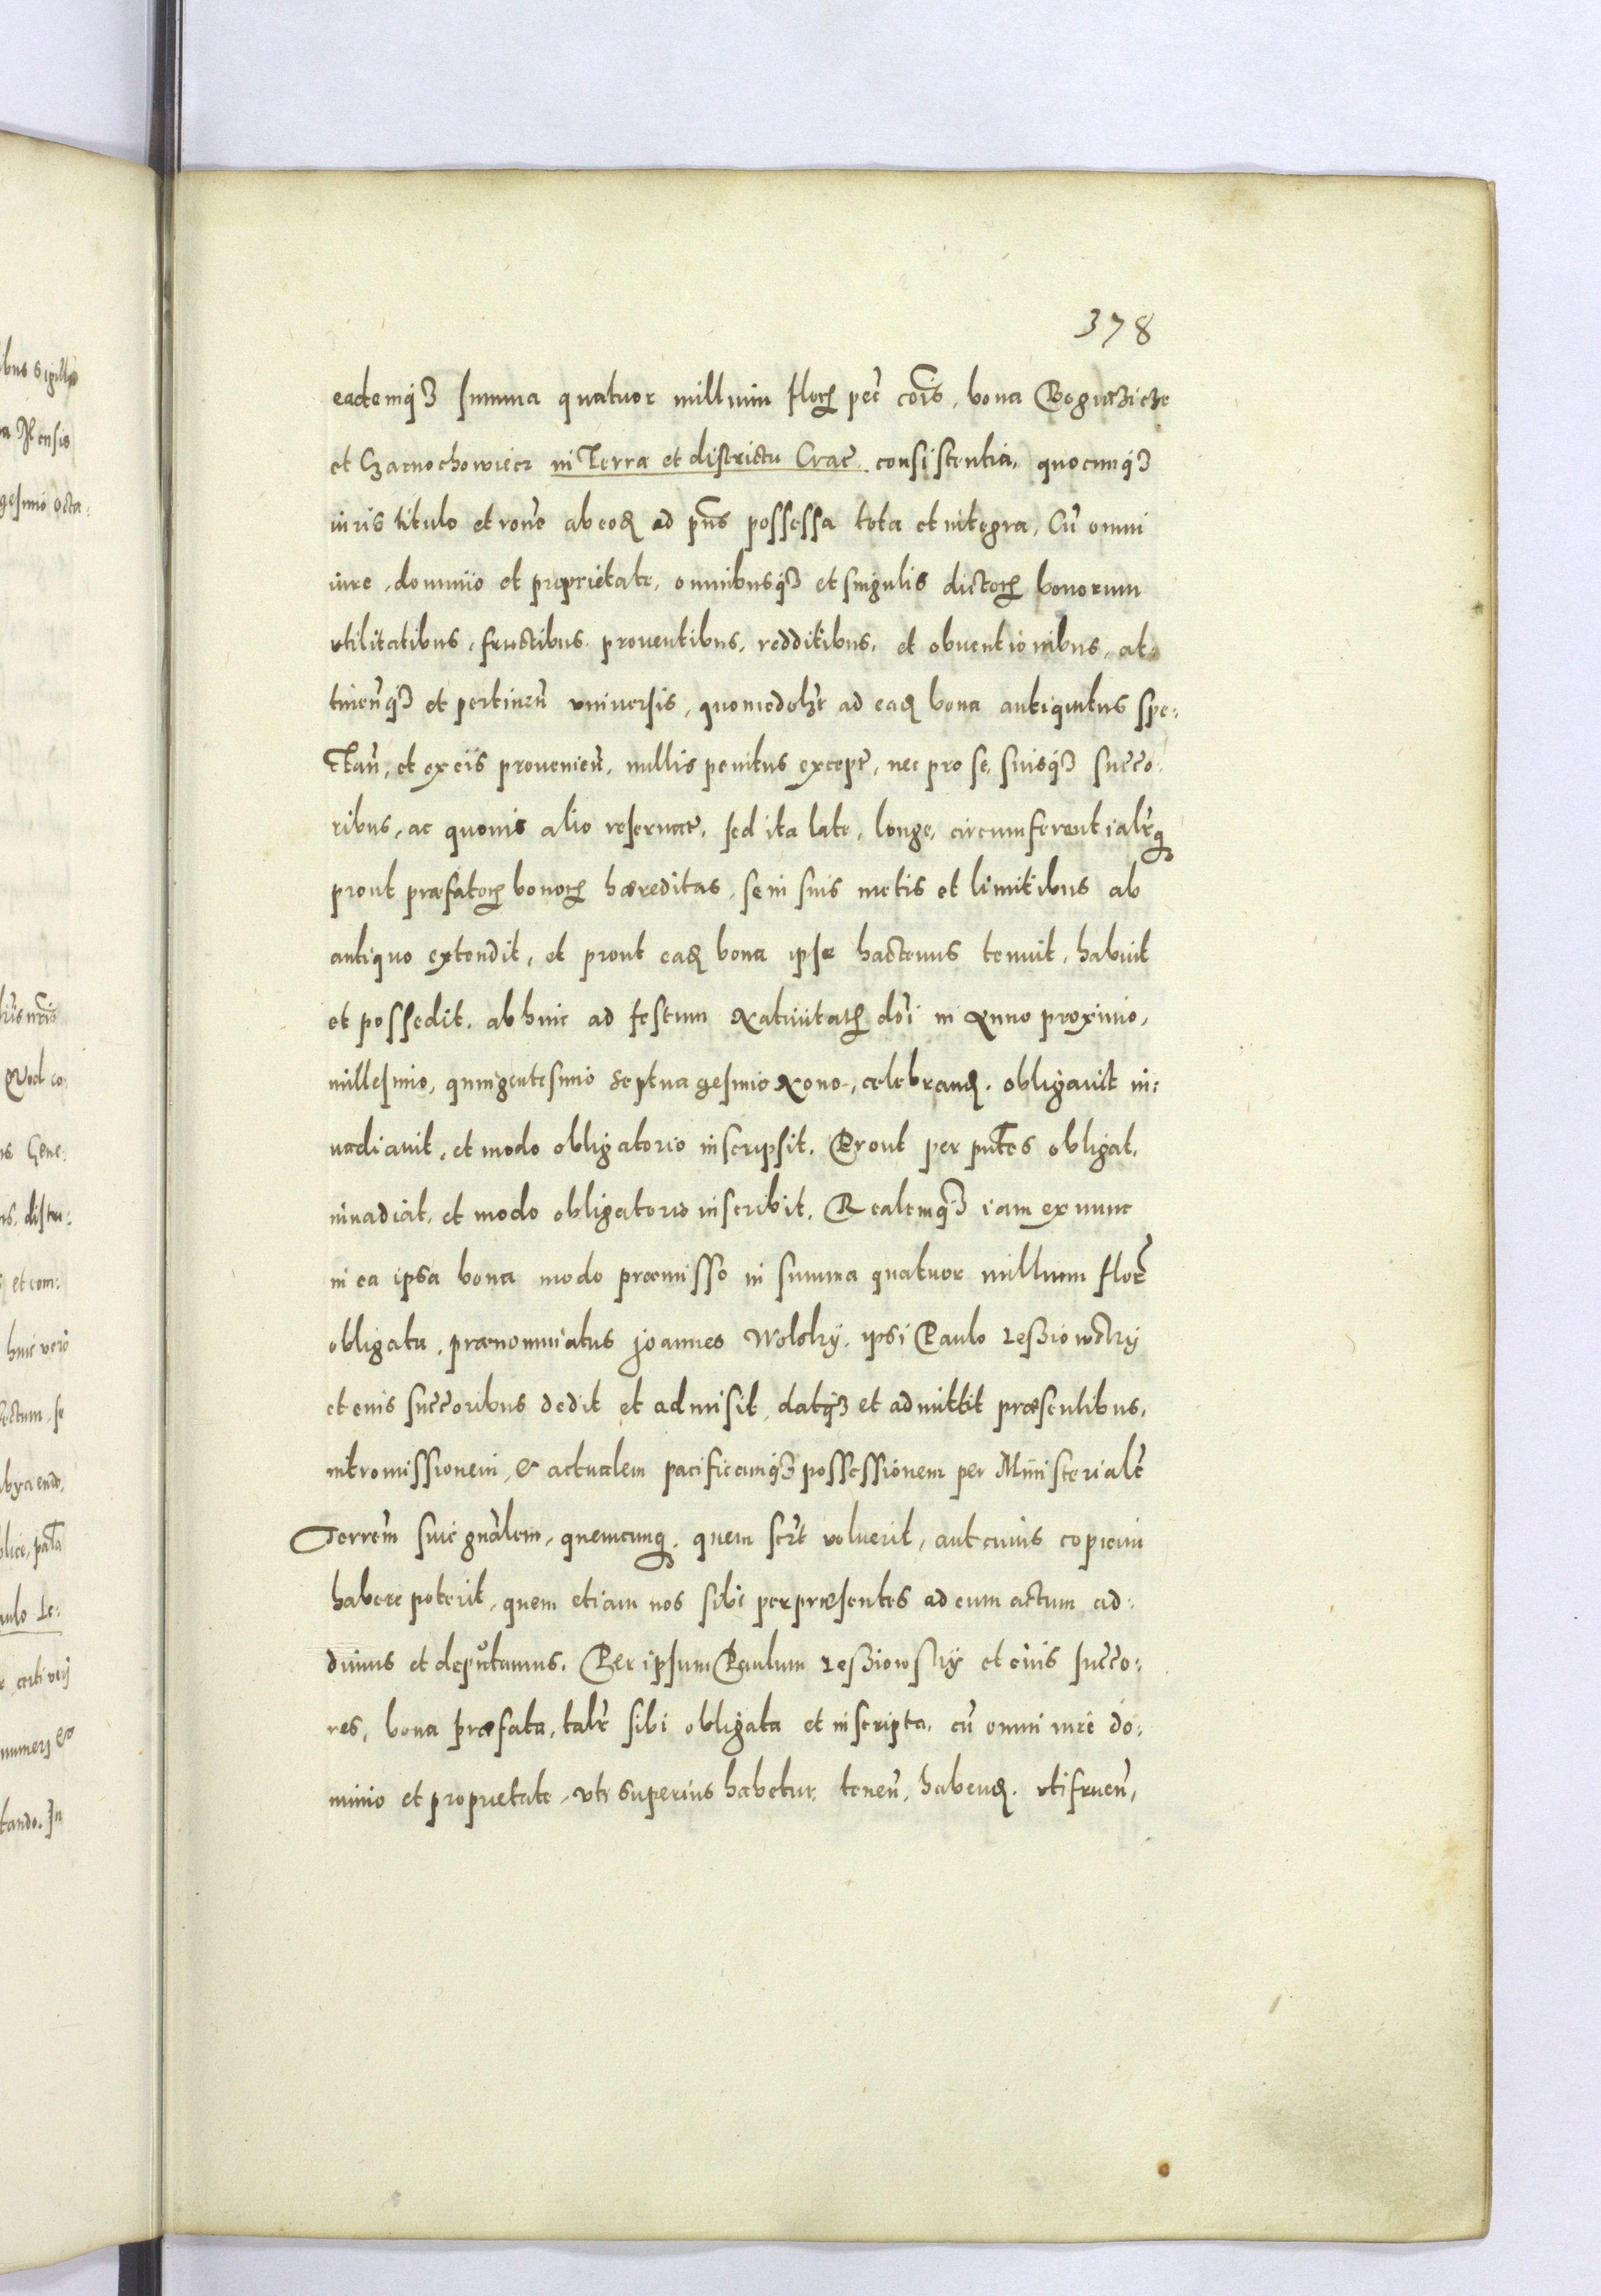 378
eademqȝ summa quatuor millium floꝝ pēc cōis, bona Boguczicze
et Czarnochowicz in Terra et districtu Crac̄ consistentia, quocunqȝ
iuris titulo et rōne ab eod ad pn̄s possessa tota et integra, Cū omni
iure, dominio et proprietate, omnibusqȝ et singulis dictoꝝ bonorum
vtilitatibus, fructibus prouentibus, redditibus, et obuentionibus, at-
tinen̄qȝ et pertinen̄ vniuersis, quomodolȝt ad ead bona antiquitus spe:
ctan̄, et ex eis prouenien̄, nullis penitus except̄, nec pro se, suisqȝ succo:
ribus, ac quouis alio reseruat̄, sed ita late, longe, circumferentialr̄q
prout præfatoꝝ bonoꝝ hæreditas, se in suis metis et limitibus ab
antiquo extendit, et prout ead bona ipse hactenus tenuit, habuit
et possedit. abhinc ad festum Natiuitatꝝ dōi in Anno proximo,
millesimo, quingentesimo Septuagesimo Nono, celebrand. obligauit in:
uadiauit, et modo obligatorio inscripsit. Prout per pn̄tes obligat,
inuadiat, et modo obligatorio inscribit. Realemqȝ iam ex nunc
in ea ipsa bona modo præmisso in summa quatuor millium flor̄
obligata, prænominatus Joannes Wolsky, ipsi Paulo Lesziowsky
et eius succoribus dedit et admisit, datqȝ et admittit præsentibus,
intromissionem, & actualem pacificamqȝ possessionem per Ministeriale̅
Terrēm siue gnālem, quemcunq. quem scr̄t voluerit, aut cuius copiam
habere poterit, quem etiam nos sibi per præsentes ad eum actum ad:
dimus et deputamus. Per ipsum Paulum Lesziowsky et eius succo:
res, bona præfata, talr̄ sibi obligata et inscripta, cū omni iure do:
minio et proprietate, vti superius habetur, tenen̄, habend. vtifruen̄,